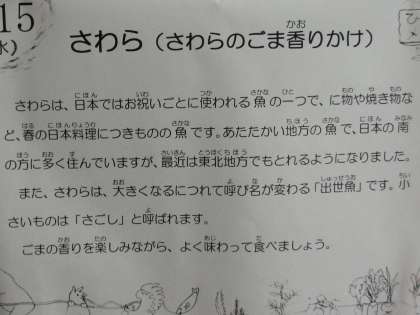 15
水)
さわら(さわらのごま香りかけ)
さわらは、日本ではお祝いごとに使われる魚の一つで、に物や焼き物な
ど、春の日本料理につきものの魚です。あたたかい地方の魚で、日本の南
の方に多く住んでいますが、最近は東北地方でもとれるようになりました。
また、さわらは、大きくなるにつれて呼び名が変わる「出世魚」です。小
さいものは「さごし」と呼ばれます。
ごまの香りを楽しみながら、よく味わって食べましょう。